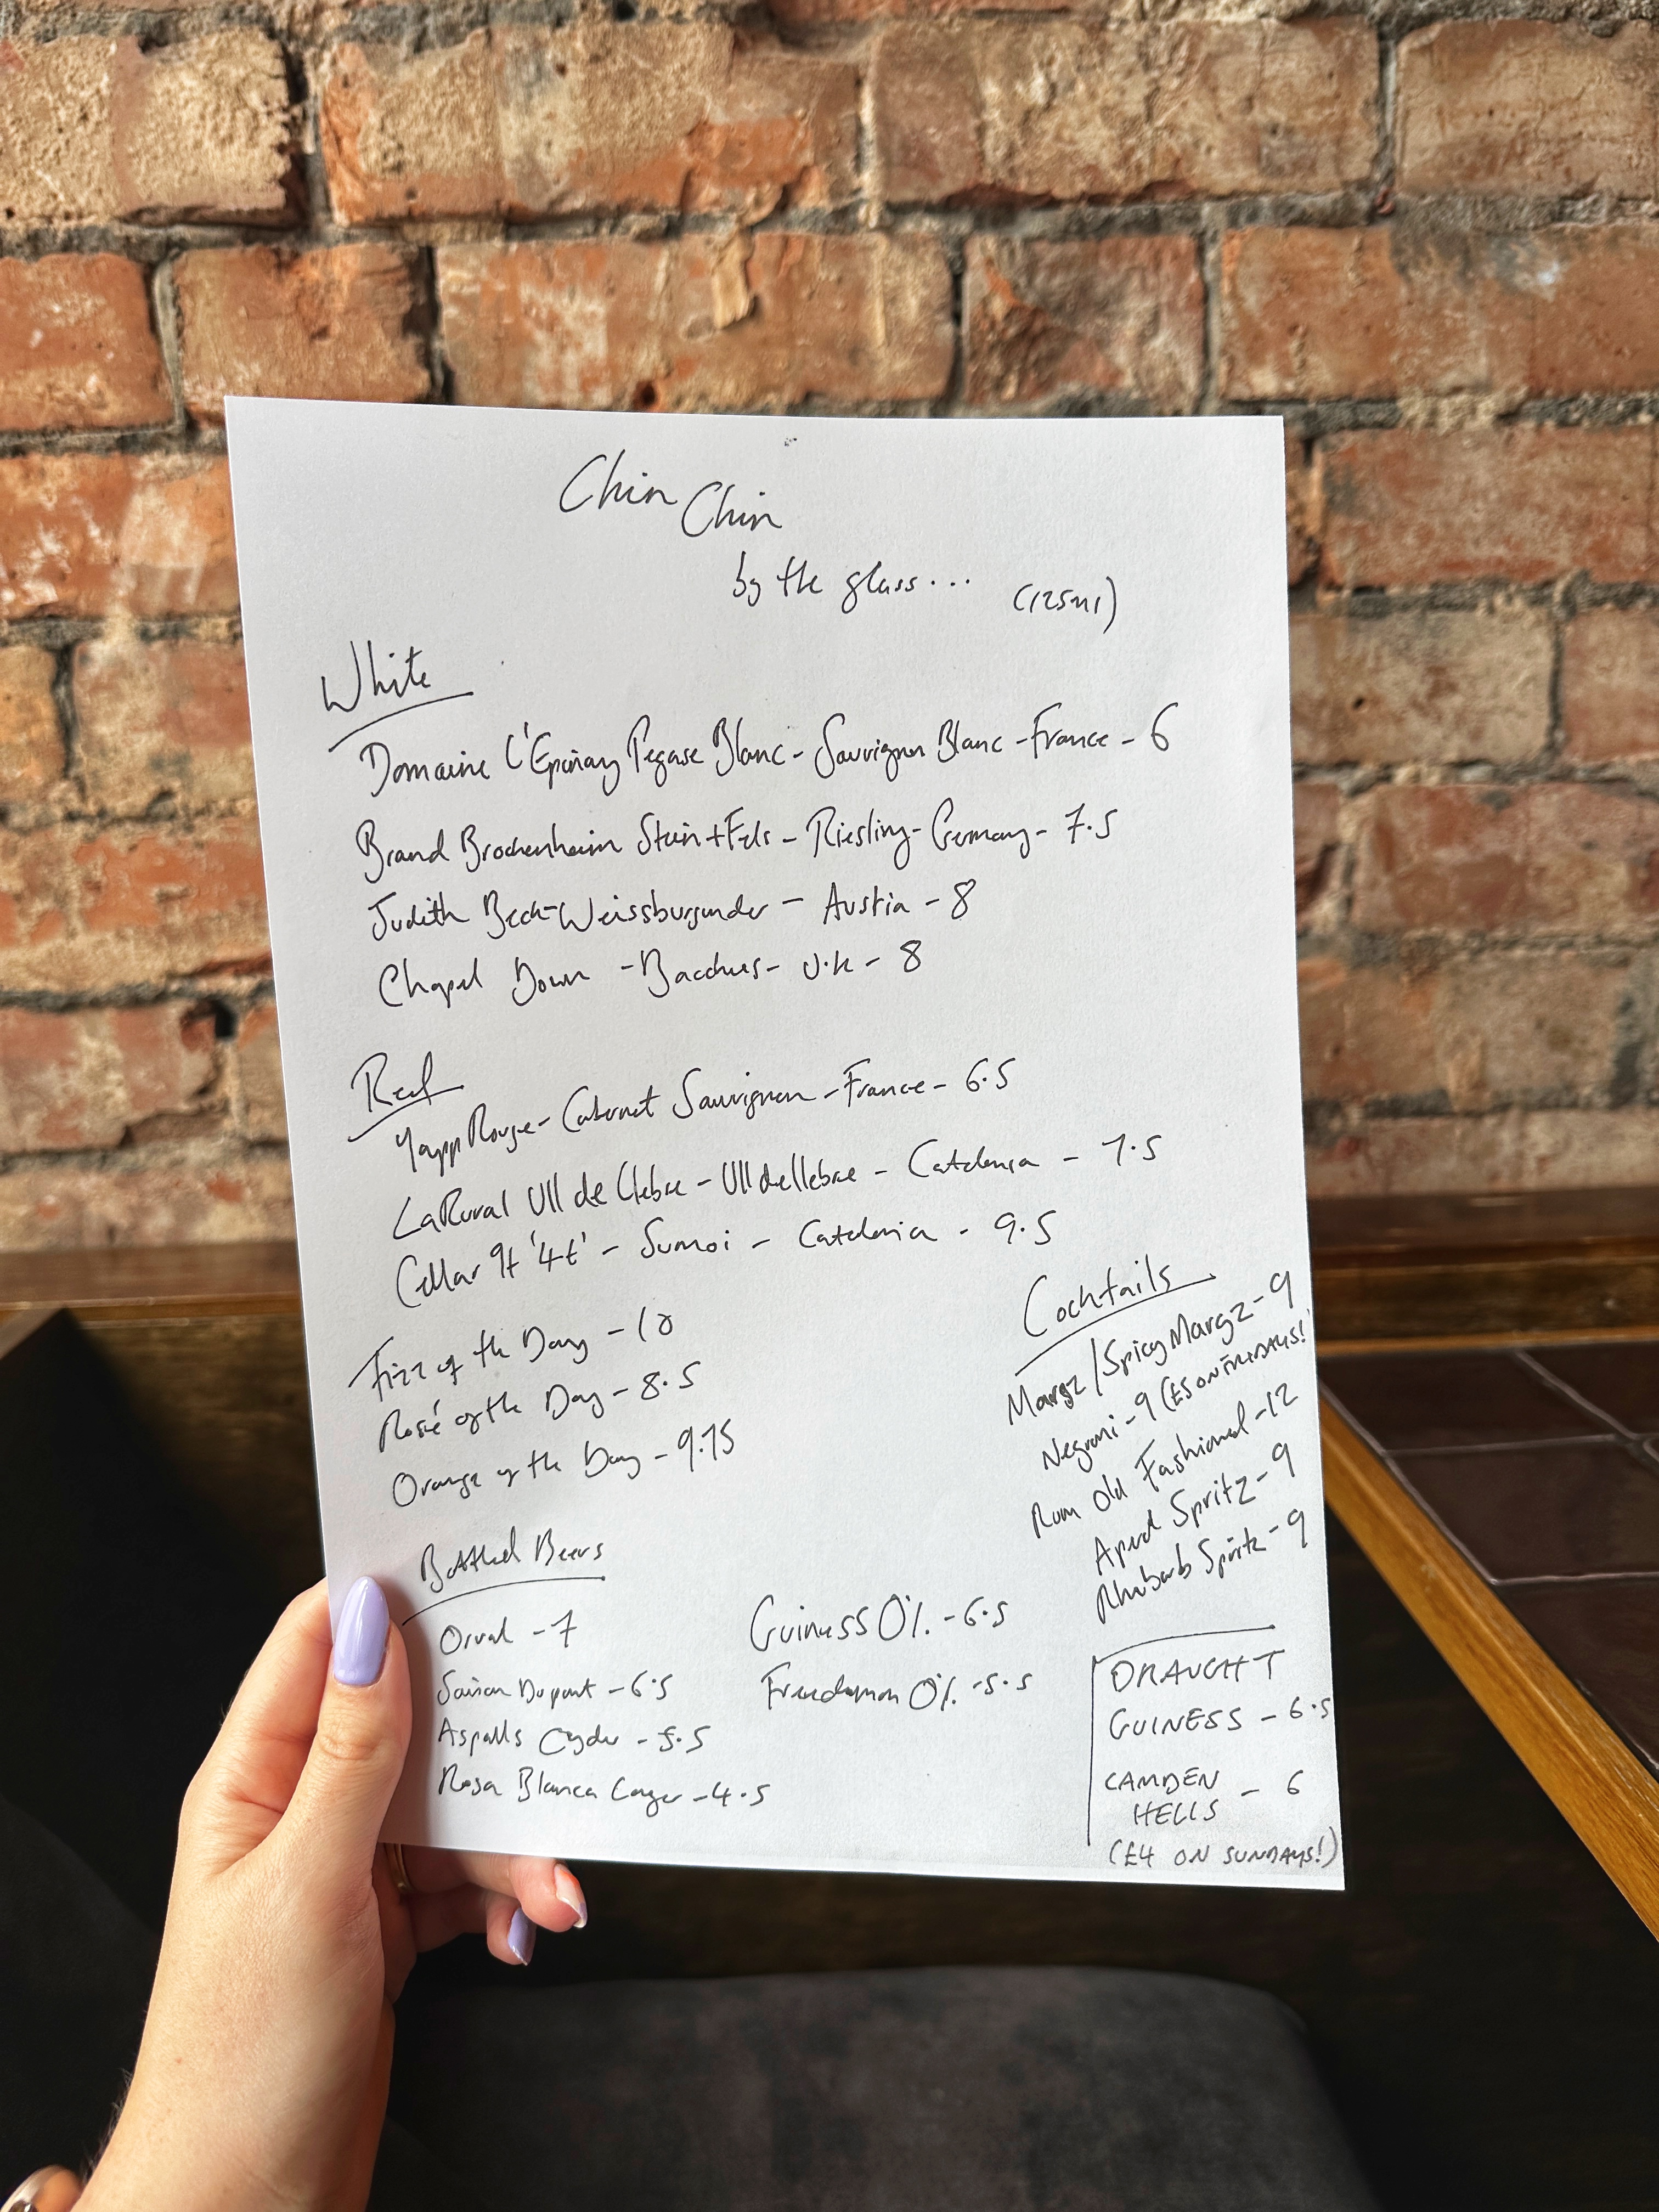 Chin Chin
by the glass... (125ml)
White
Domaine L'Epinay Pegase Blanc - Sauvignon Blanc - France - 6
Brand Brochenheim Stein + Fels - Riesling - Germany - 7.5
Judith Beck - Weissburgunder - Austia - 8
Chapel Down - Bacchus - U.K - 8
Red
Yapp Rouge - Cabernet Sauvignon - France - 6.5
LaRural Ull de Llebre - Ull de llebre - Catalonia - 7.5
Cellar 9+ '4t' - Sumoi - Catalonia - 9.5
Fizz of the Day - 10
Rosé of the Day - 8.5
Orange of the Day - 9.75
Cocktails
Margz/Spicy Margz - 9
Negroni - 9 (£5 ON THURSDAYS!
Rum Old Fashioned - 12
Aperol Spritz - 9
Rhubarb Spritz - 9
Bottled Beers
Orval - 7
Saison Dupont - 6.5
Aspalls Cyder - 5.5
Rosa Blanca Lager - 4.5
Guiness 0% - 6.5
Freedamm 0% - 5.5
DRAUGHT
GUINESS - 6.5
CAMDEN HELLS - 6
(£4 ON SUNDAYS!)